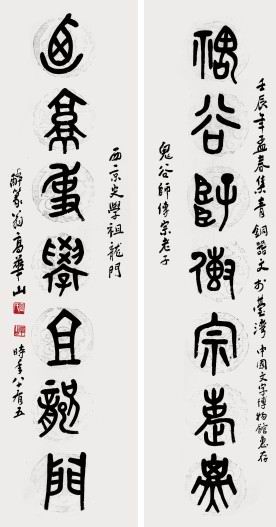 壬辰年孟春集青銅器文於臺灣中國文字博物館惠存
鬼谷師傳宗老子
鬼谷師傳宗老子
西京史學祖龍門
西京史學且龍門
醉篆翁高華山
時年八有五